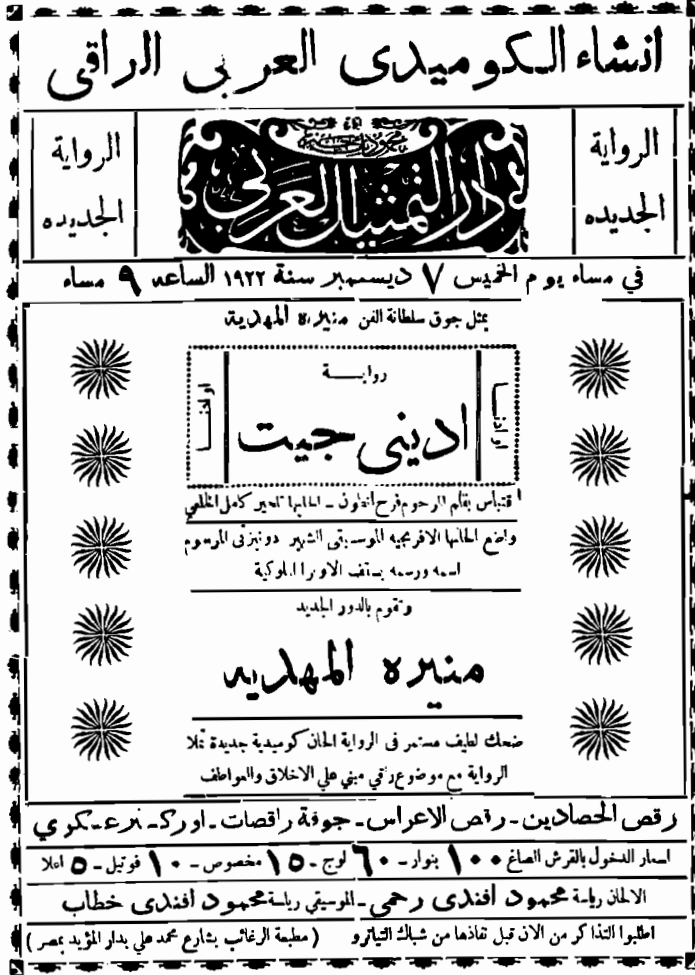 انشاء الكوميدى العربى الراقى
الرواية
الجديده
دار التمثيل العربى
الرواية
الجديده
فى مساء يوم الخميس ٧ ديسمبر سنة ١٩٢٢ الساعه ٩ مساء
يمثل جوق سلطانة الفن منيره المهدية
روايــــة
ادينى جيت
اقتباس بقلم المرحوم فرح انطون - الحانها كامل الخلعي
واضع الحانها الافرنجيه الموسيقى الشهير دونيزتى المرسوم
اسمه ورسمه بسقف الاوبرا الملوكية
وتقوم بالدور الجديد
منيره المهديه
ضحك لطيف مستمر فى الرواية الحان كوميدية جديدة تملا
الرواية مع موضوع راقي مبني علي الاخلاق والعواطف
رقص الحصادين - رقص الاعراس - جوقة راقصات - اوركـ
اسعار الدخول بالقرش الصاغ ١٠٠ بنوار - ٦٠ لوج - ١٥ مخصوص - ١٠ فوتيل - ٥ اعلا
الالحان رياسة محمود افندى رحمي - الموسيقي رياسة محمود افندى خطاب
اطلبوا التذاكر من الان قبل نفاذها من شباك التياترو ( مطبعة الرغائب بشارع محمد علي بدار المؤيد بمصر )